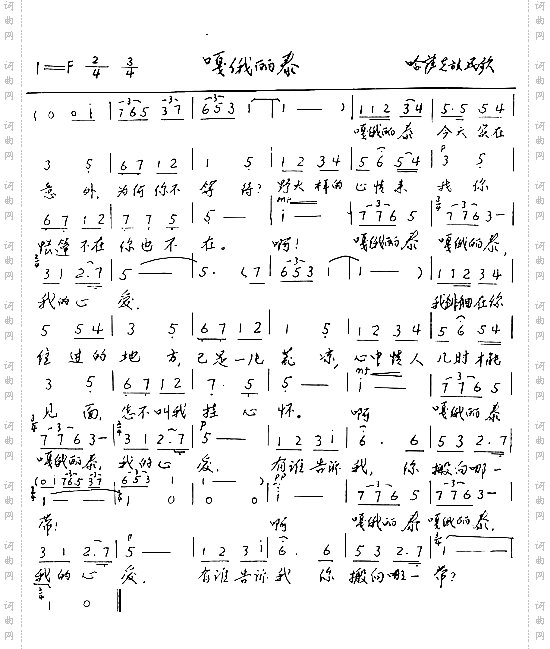 1=F 2/4 3/4 嘎俄丽泰 哈萨克族民歌
(0 0 i | 765 37 | 653 1 | 1 — ) | 112 34 | 5·5 54 |
嘎俄丽泰 今天实在
3 5 | 67 12 | 1 5 | 12 34 | 56 54 | 3 5 |
意外, 为何你不 等待? 野火样的 心情来 找你
67 12 | 7 7 5 | 5 — | i — | 77 65 | 7763— |
帐篷不在 你也不 在。 啊! 嘎俄丽泰 嘎俄丽泰,
31 2·7 | 5 — | 5· (7 | 653 1 | 1 — ) | 112 34 |
我的心 爱. 我徘徊在你
5 54 | 3 5 | 67 12 | 1 5 | 12 34 | 56 54 |
住过的 地方, 已是一片 荒凉, 心中情人 几时才能
3 5 | 67 12 | 7· 5 | 5 — | i — | 77 65 |
见面, 怎不叫我 挂心 怀. 啊 嘎俄丽泰
7763— | 312·7 | 5 — | 12 3i | 6· 6 | 53 2·7 |
嘎俄丽泰, 我的心 爱. 有谁告诉 我, 你 搬向哪一
(0i 765 37 | 653 1
1 — — | 1 0 | 1 0 0 ) | i — | 77 65 | 7763— |
带! 啊 嘎俄丽泰 嘎俄丽泰,
31 2·7 | 5 — | 12 3i | 6· 6 | 53 2·7 | 1 — — |
我的心 爱. 有谁告诉 我 你 搬向哪一 带?
1 0 ‖
词曲网
词曲网
词曲网
词曲网
词曲网
词曲网
词曲网
词曲网
词曲网
词曲网
词曲网
词曲网
词曲网
词曲网